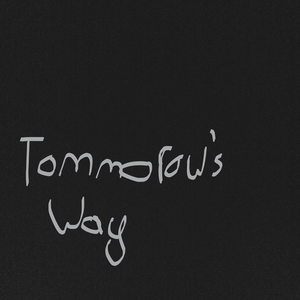 Tommorow's
Way